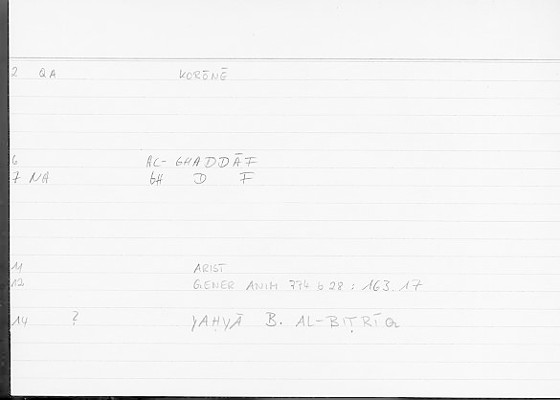 2 QA KORŌNĒ
6 AL-GHADDĀF
7 NA GH D F
11 ARIST
12 GENER ANIM 774 b 28 : 163.17
14 ? YAḤYĀ B. AL-BIṬRĪQ